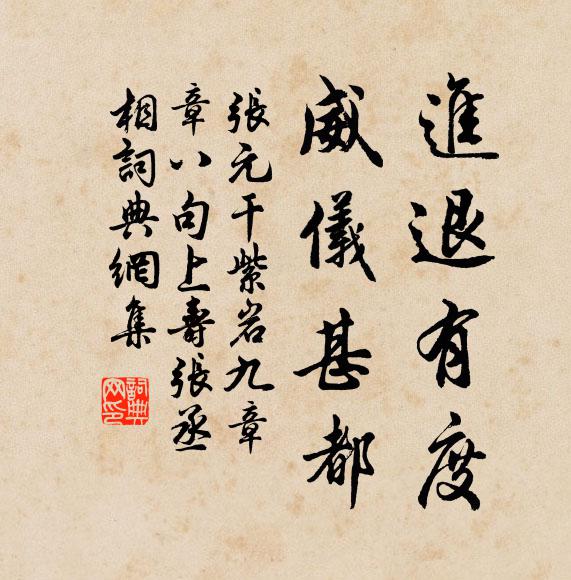 進退有度
威儀甚都
張元干紫岩九章
章八句上壽張丞
相詞典網集
詞典網印